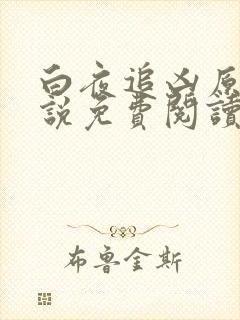 白夜追凶原
說免費閱讀
布魯金斯